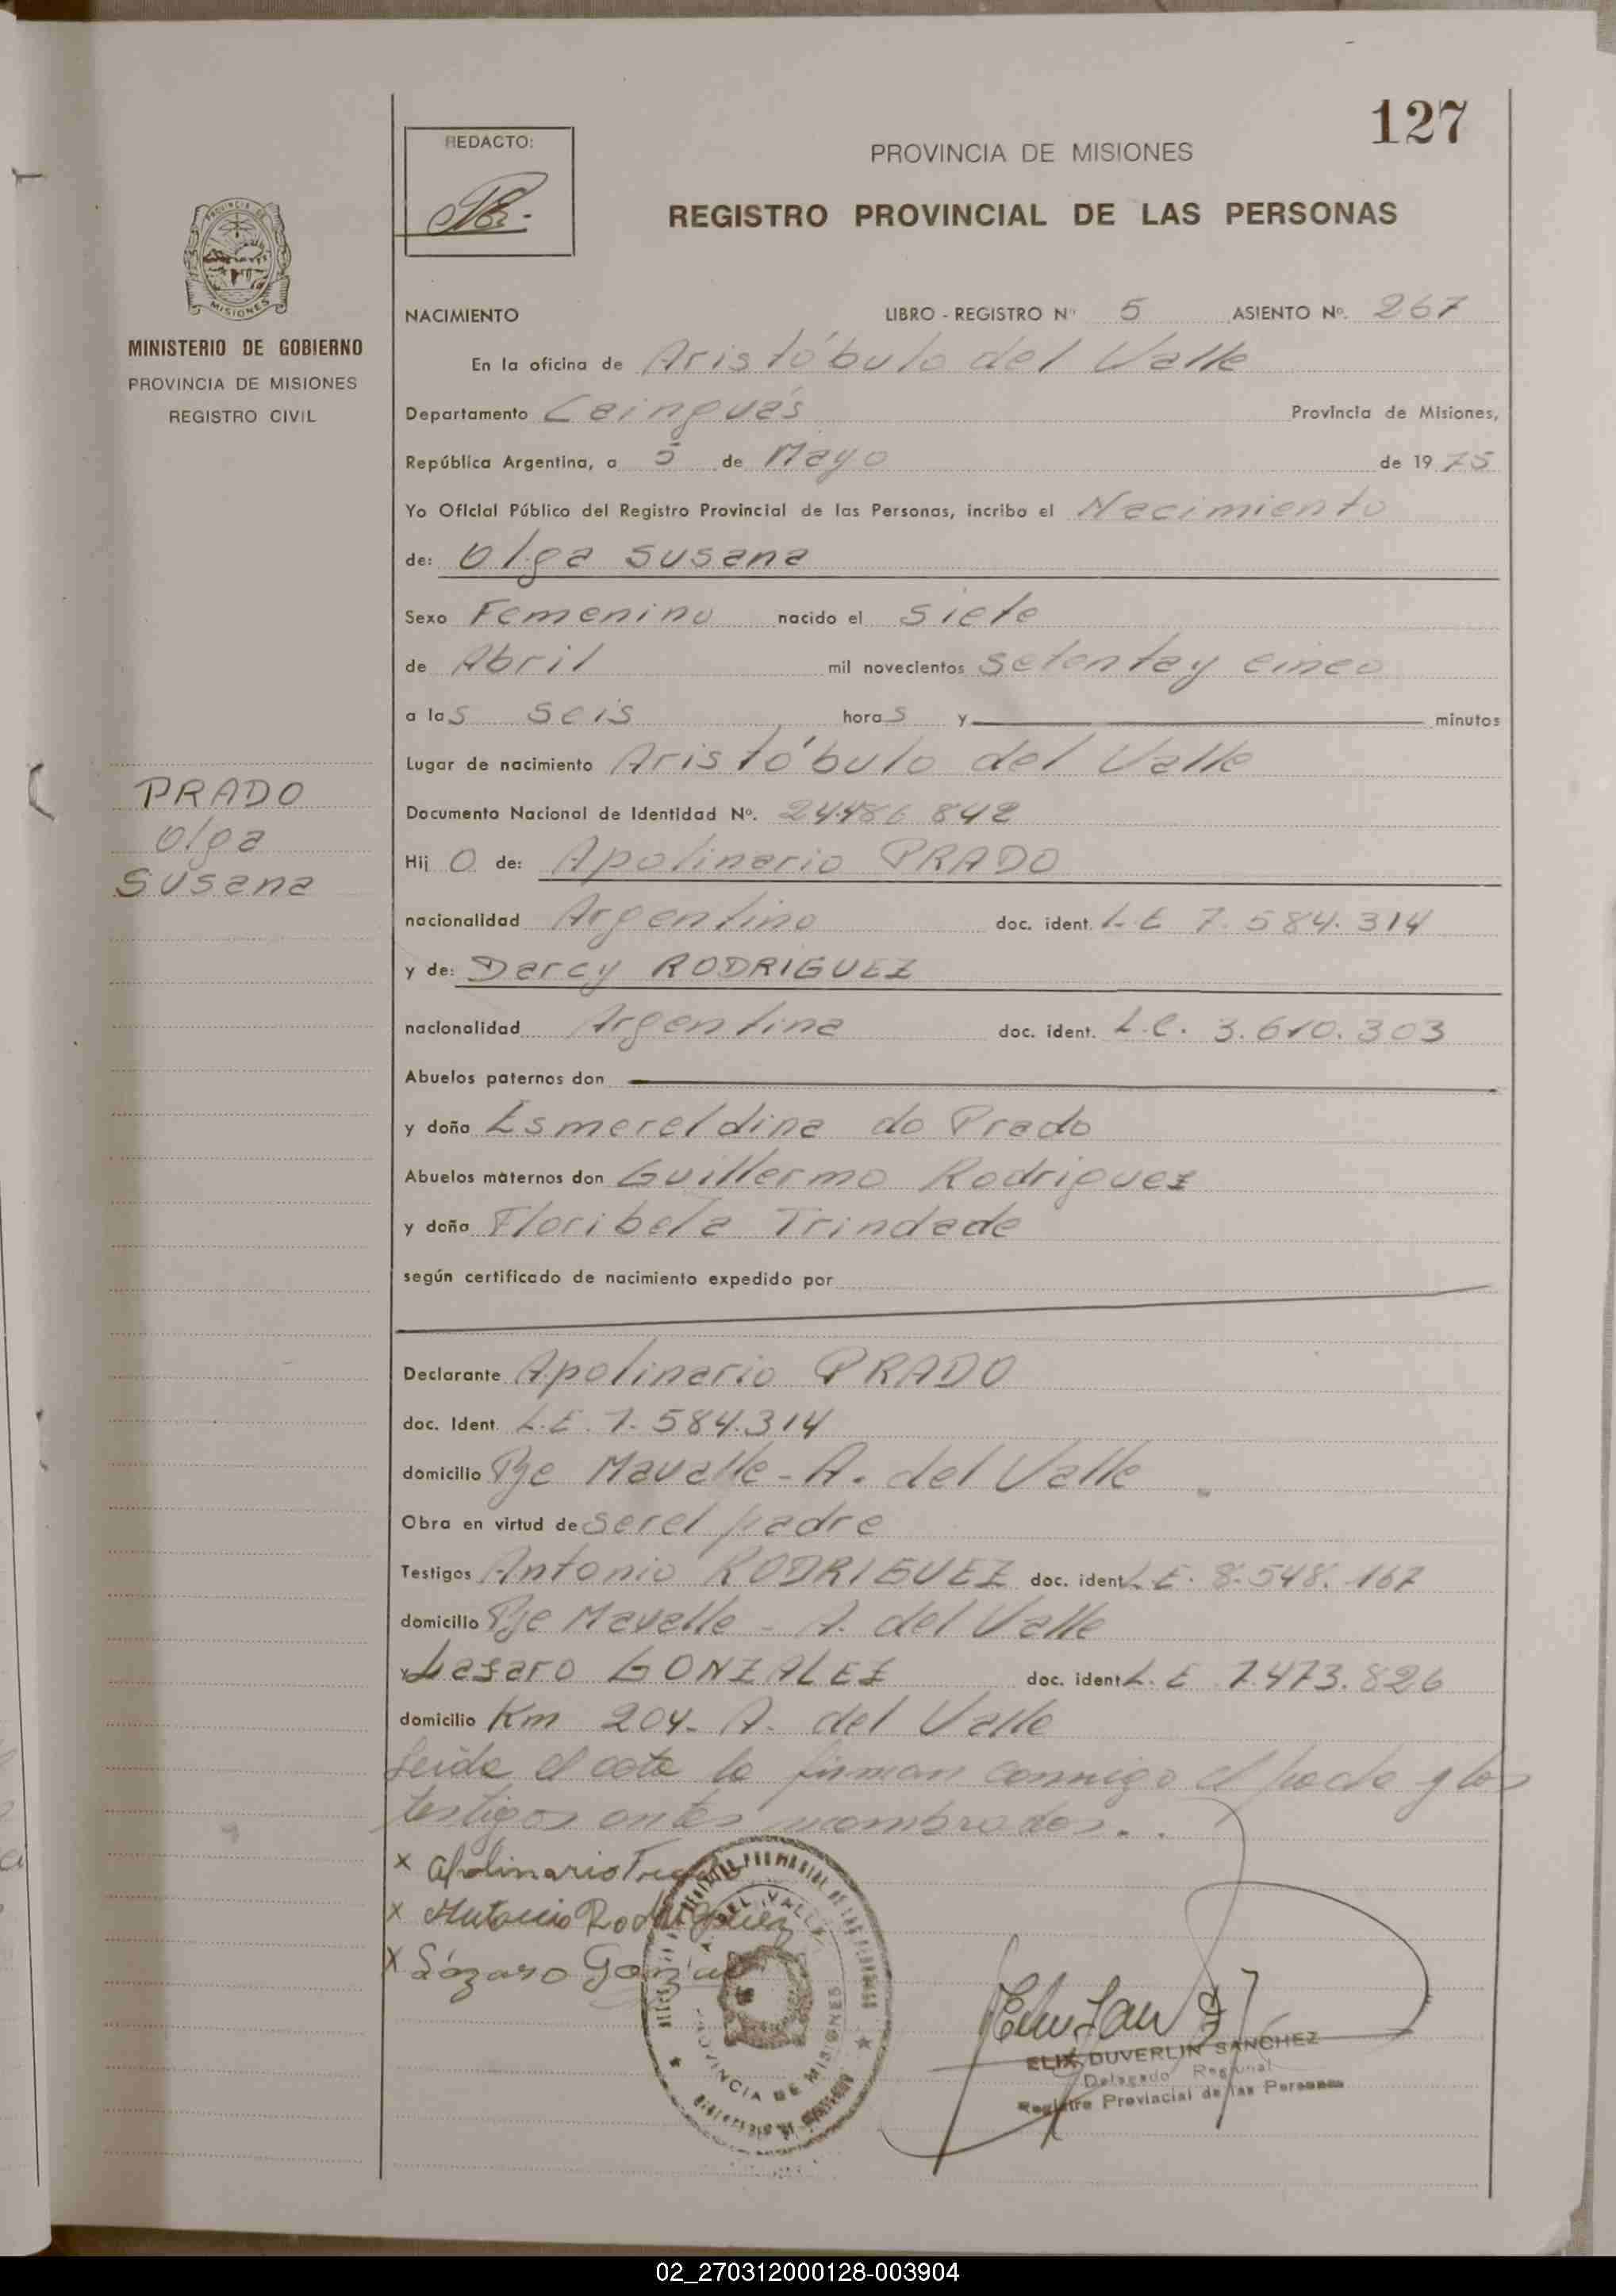 127
REDACTO:
PROVINCIA DE MISIONES
REGISTRO PROVINCIAL DE LAS PERSONAS
PROVINCIA DE
MISIONES
MINISTERIO DE GOBIERNO
PROVINCIA DE MISIONES
REGISTRO CIVIL
NACIMIENTO LIBRO - REGISTRO Nº 5 ASIENTO Nº. 267
En la oficina de Aristóbulo del Valle
Departamento Cainguás Provincia de Misiones,
República Argentina, a 5 de Mayo de 1975
Yo Oficial Público del Registro Provincial de las Personas, incribo el Nacimiento
de: Olga Susana
Sexo Femenino nacido el siete
de Abril mil novecientos setenta y cinco
a las seis horas y minutos
Lugar de nacimiento Aristóbulo del Valle
PRADO
Olga
Susana
Documento Nacional de Identidad Nº. 24.486 842
Hij O de: Apolinario PRADO
nacionalidad Argentino doc. ident. L.E 7.584.314
y de: Darcy RODRIGUEZ
nacionalidad Argentina doc. ident. L.C. 3.610.303
Abuelos paternos don
y doña Esmereldina do Prado
Abuelos maternos don Guillermo Rodriguez
y doña Floribela Trindade
según certificado de nacimiento expedido por
Declarante Apolinario PRADO
doc. Ident. L.E. 7.584.314
domicilio Pje Mavalle - A. del Valle
Obra en virtud de ser el padre
Testigos Antonio RODRIGUEZ doc. ident L.E. 8.548.167
domicilio Pje Mavalle - A. del Valle
y Lasaro GONZALEZ doc. ident L.E 7.473.826
domicilio Km 204- A. del Valle
Leida el acta la firman conmigo el padre y los
testigos antes nombrados..
x Apolinario
x Antonio Rodriguez
x Lázaro Gonzalez
A. DEL VALLE
PROVINCIA DE MISIONES
ELIX DUVERLIN SANCHEZ
Delegado Regional
Registro Provincial de las Personas
02_270312000128-003904